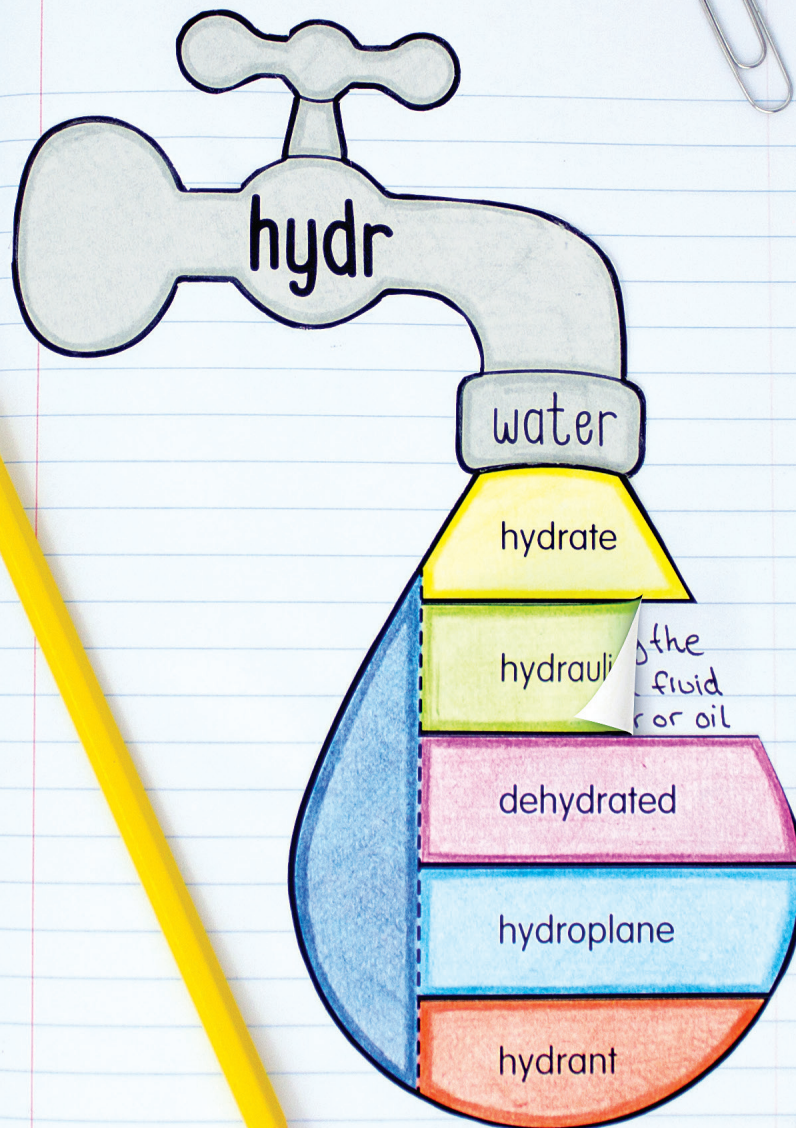 hydr
water
hydrate
hydrauli
the
fluid
or oil
dehydrated
hydroplane
hydrant